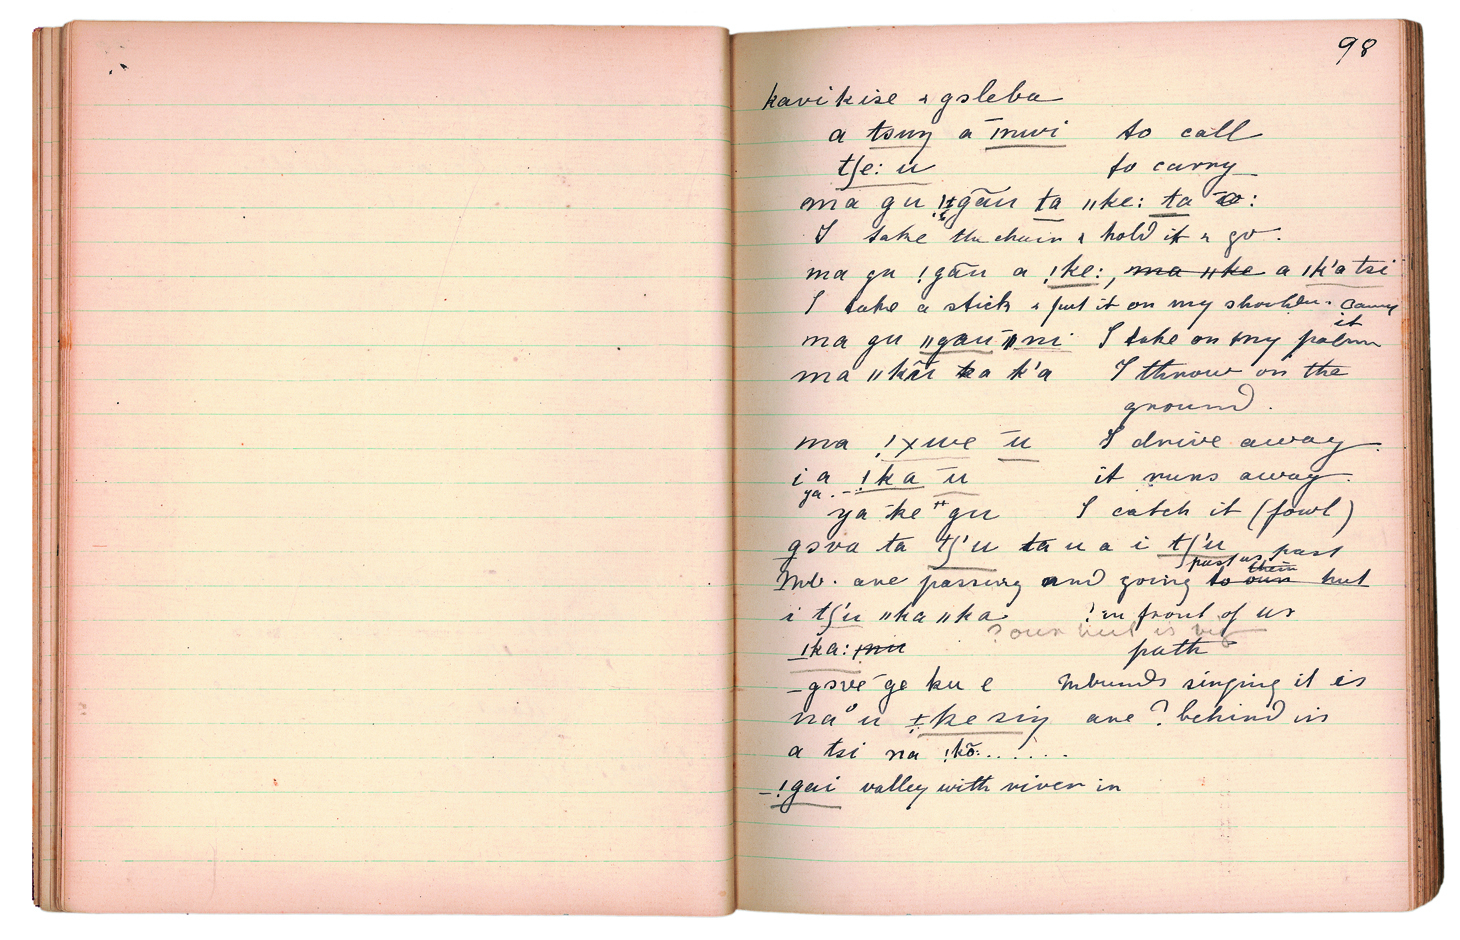 98
kavikise & gsleba
a tsuŋ a ̄ınwi to call
tʃe: u to carry
ma gu !gãu ta ‖ke: ta
I take the chain & hold it & go.
ma gu !gãu a !ke:, ma ‖ke a ık'a tsi
I take a stick & put it on my shoulder & carry it
ma gu ‖gau ni I take on my palm
ma ‖kũ ka k'a I throw on the
ground.
ma !xuue ū I drive away.
i a !ka ū it runs away.
ya
ya ke gu I catch it (fowl)
gsva ta tʃ'u ta u a i tʃ'u
past us past
them
Mb. are passing and going to our hut
i tʃ'u ‖ka ‖ka ! in front of us
? our hut is
ıka: path
- gsve ge ku e Mbunds singing it is
na u ǂke siŋ are ? behind in
a tsi na !kõ.......
- !gai valley with river in